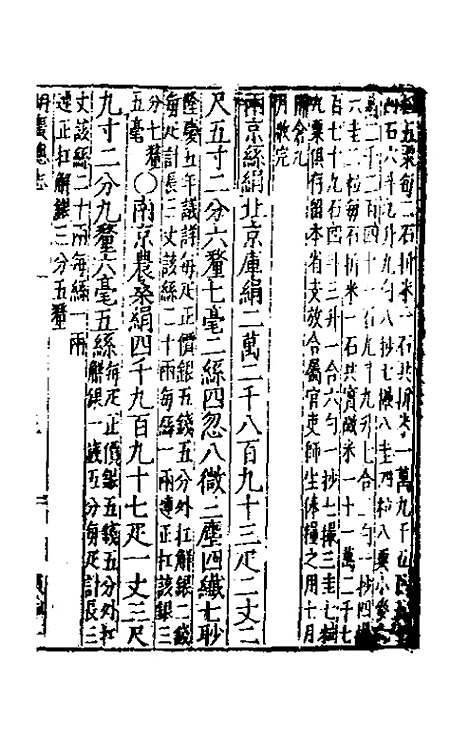 五粟每二石折米一石共折米一萬九千五
四石六斗九升九勺八抄七撮八圭四粒八粟小麥
萬二千二百四十一石九斗九升七合一勺一抄四
六圭二粒每石折米一石共實徵米一十一萬二千七
百七十九石四斗三升一合六勺一抄七撮三圭七粒
九粟俱存留本省支放合屬官吏師生俸糧之用十月
開倉
月徵完
兩京絲絹北京庫絹二萬二千八百九十三疋二丈二
尺五寸二分六釐七毫二絲四忽八微二塵四纖七眇
隆慶五年議詳每疋正價銀五錢五分外扛解銀二錢
每疋計長三丈該絲二十兩每絲一兩連正扛該銀三
分七釐
五毫
〇南京農桑絹四千九百九十七疋一丈三尺
九寸二分九釐六毫五絲
每疋正價銀五錢五分外扛
解銀一錢五分每疋計長三
丈該絲二十兩每絲一兩
連正扛解銀三分五釐
湖廣總志